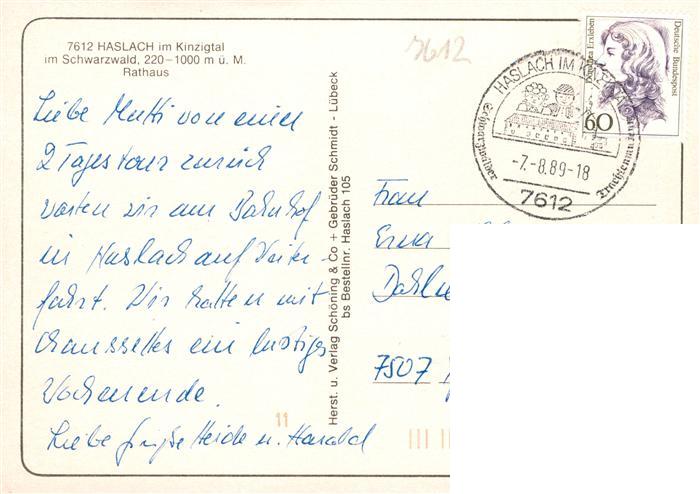 7612 HASLACH im Kinzigtal
im Schwarzwald, 220–1000 m ü. M.
Rathaus
7612
Liebe Mutti von einer
2 Tagestour zurück
warten wir am Bahnhof
in Haslach auf Weiter-
fahrt. Wir hatten mit
ein lustiges
Wochenende.
Liebe Grüße Heide u. Harald
11
Herst. u. Verlag Schöning & Co + Gebrüder Schmidt - Lübeck
bs Bestellnr. Haslach 105
HASLACH IM
Schwarzwälder
-7.-8.89-18
7612
Erxleben
Deutsche Bundespost
60
Frau
Erna
7507